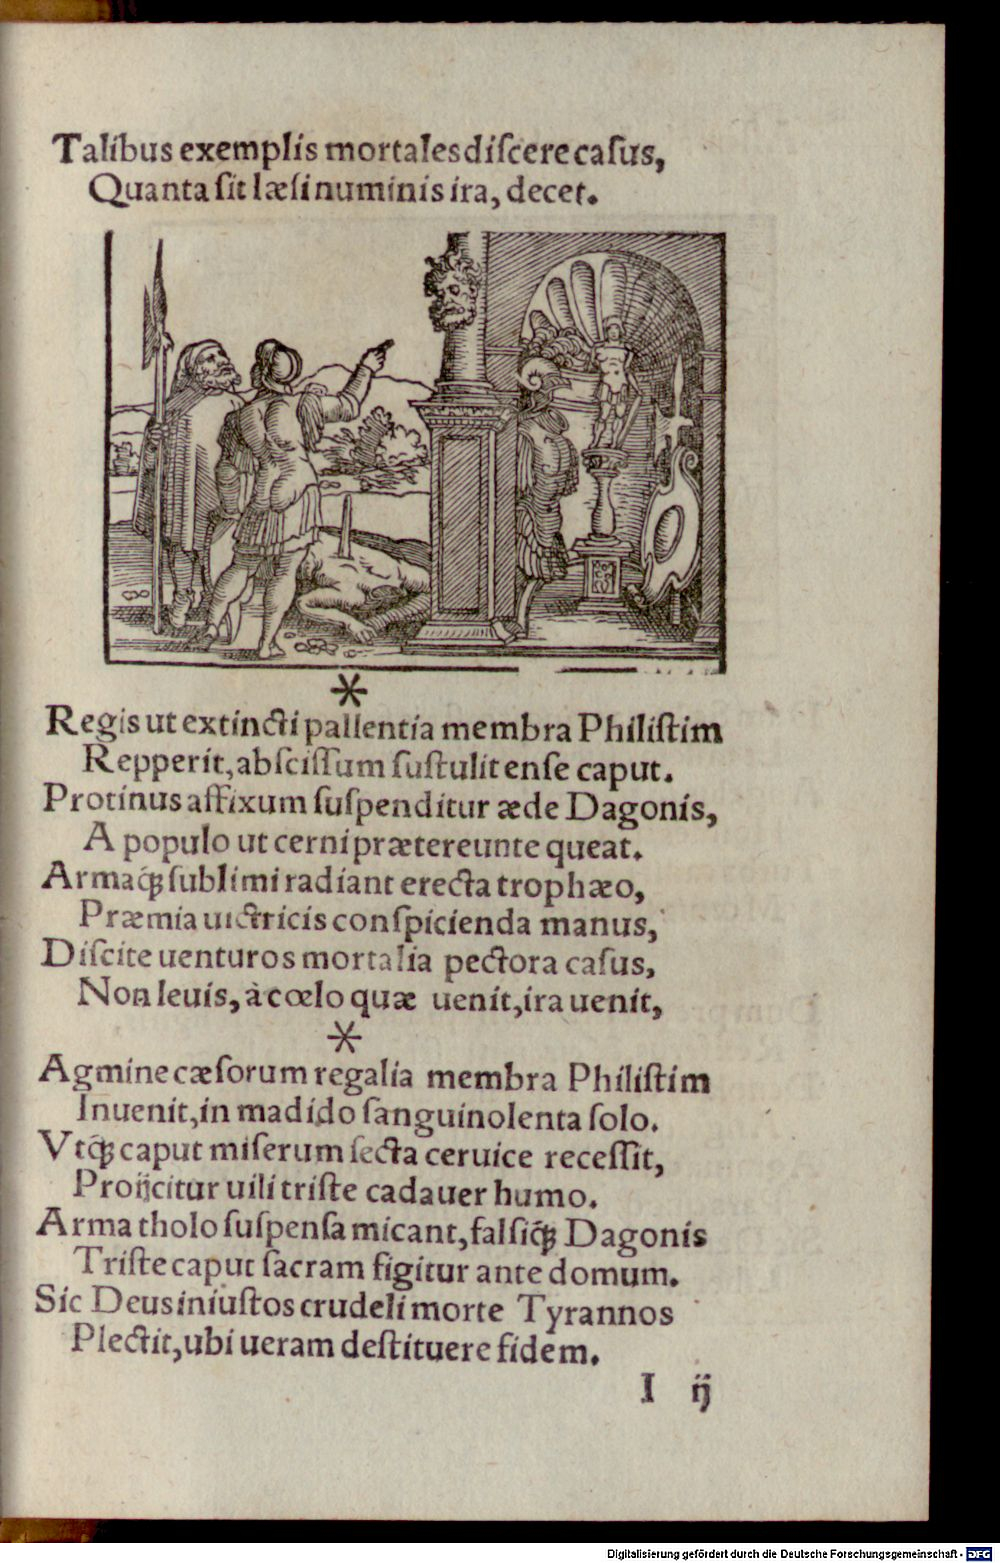 Talibus exemplis mortales diſcere caſus,
Quanta ſit læſi numinis ira, decet.
*
Regis ut extincti pallentia membra Philiſtim
Repperit, abſciſſum ſuſtulit enſe caput.
Protinus affixum ſuſpenditur æde Dagonis,
A populo ut cerni prætereunte queat.
Armaq́ꝫ ſublimi radiant erecta trophæo,
Præmia uictricis conſpicienda manus,
Diſcite uenturos mortalia pectora caſus,
Non leuis, à cœlo quæ uenit, ira uenit,
*
Agmine cæſorum regalia membra Philiſtim
Inuenit, in madido ſanguinolenta ſolo.
Vtq́ꝫ caput miſerum ſecta ceruice receſſit,
Proijcitur uili triſte cadauer humo.
Arma tholo ſuſpenſa micant, falſiq́ꝫ Dagonis
Triſte caput ſacram figitur ante domum.
Sic Deus iniuſtos crudeli morte Tyrannos
Plectit, ubi ueram deſtituere fidem.
I ij
Digitalisierung gefördert durch die Deutsche Forschungsgemeinschaft - DFG